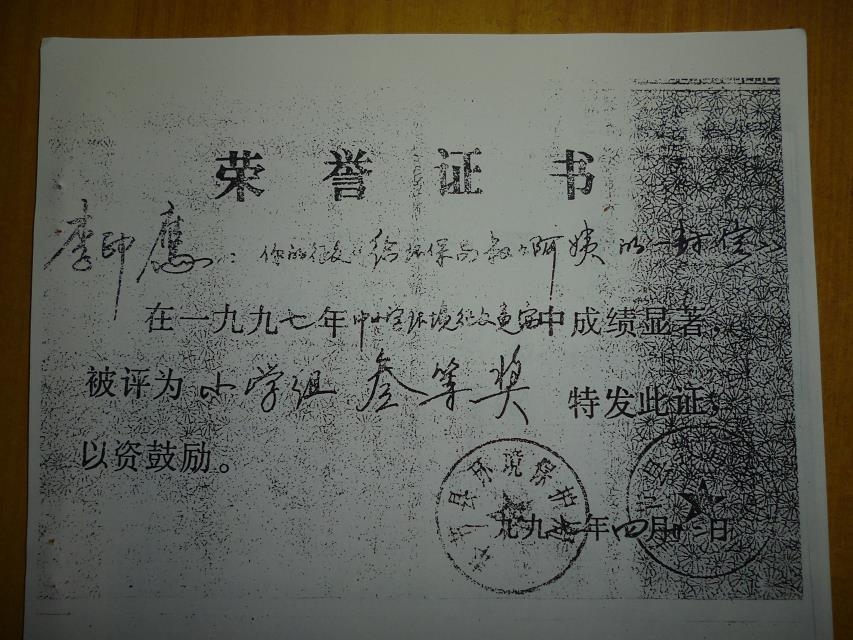 荣誉证书
李印鹰：你的征文《给环保局叔叔阿姨的一封信》
在一九九七年中小学环境征文竞赛中成绩显著，
被评为小学组叁等奖 特发此证，
以资鼓励。
县环境保护
县
一九九七年四月 日